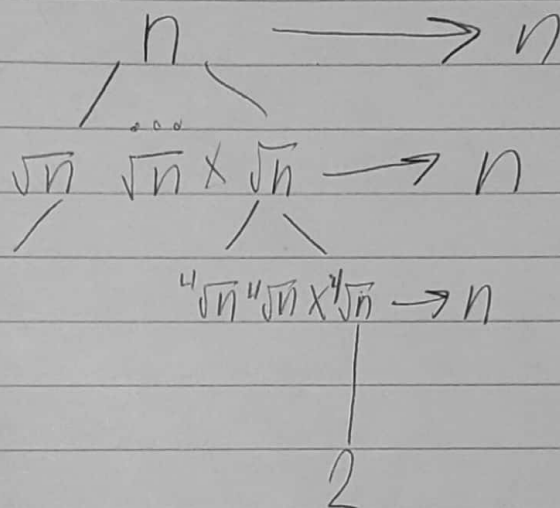 n → n
...
√n √n × √n → n
⁴√n ⁴√n × ⁴√n → n
2